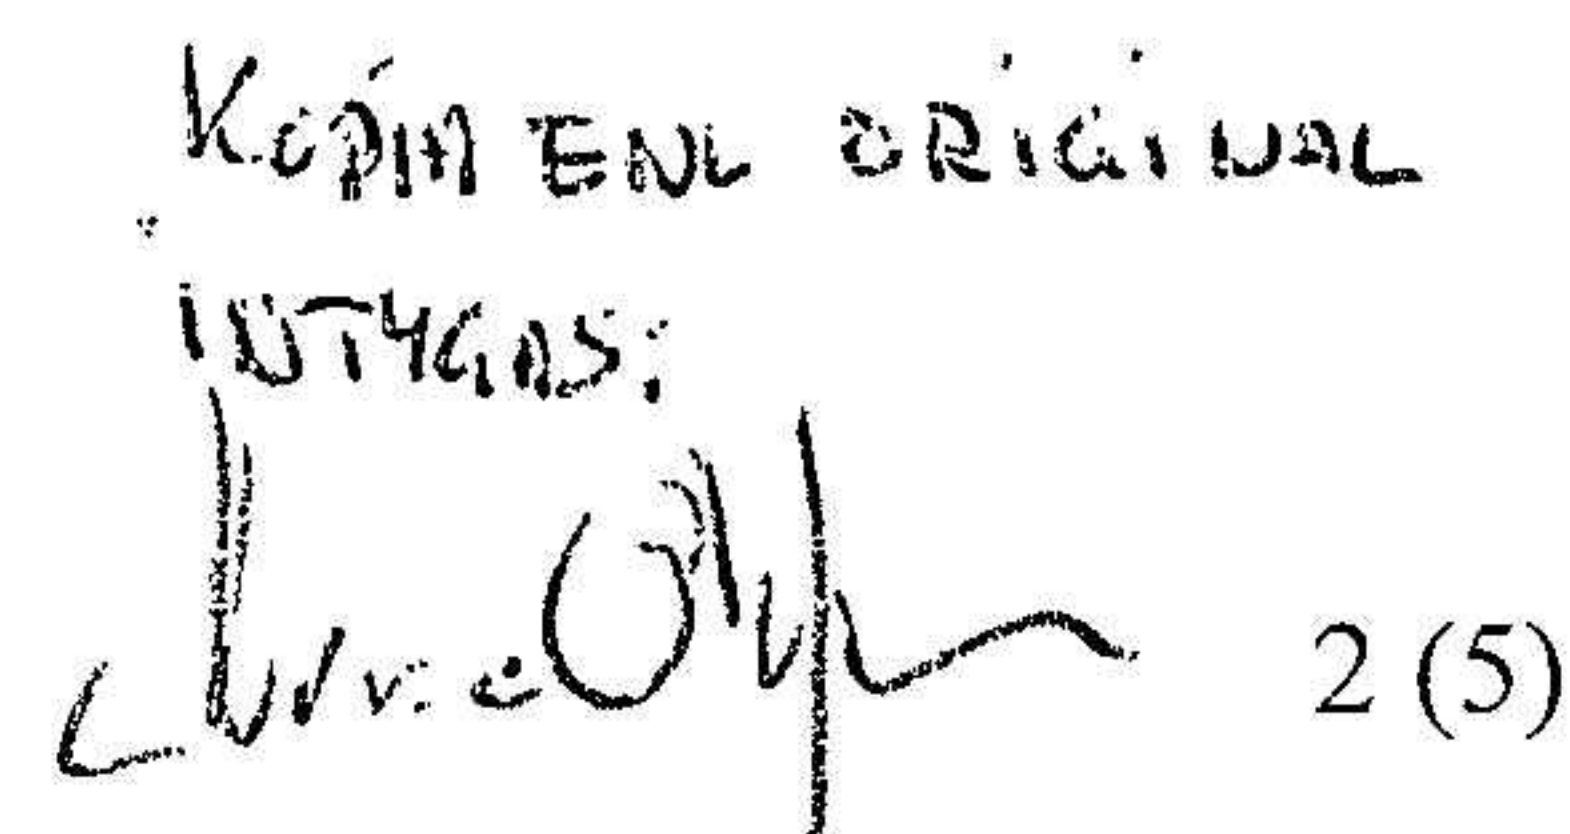 KOPIA ENL ORIGINAL
INTYGAS:
2 (5)